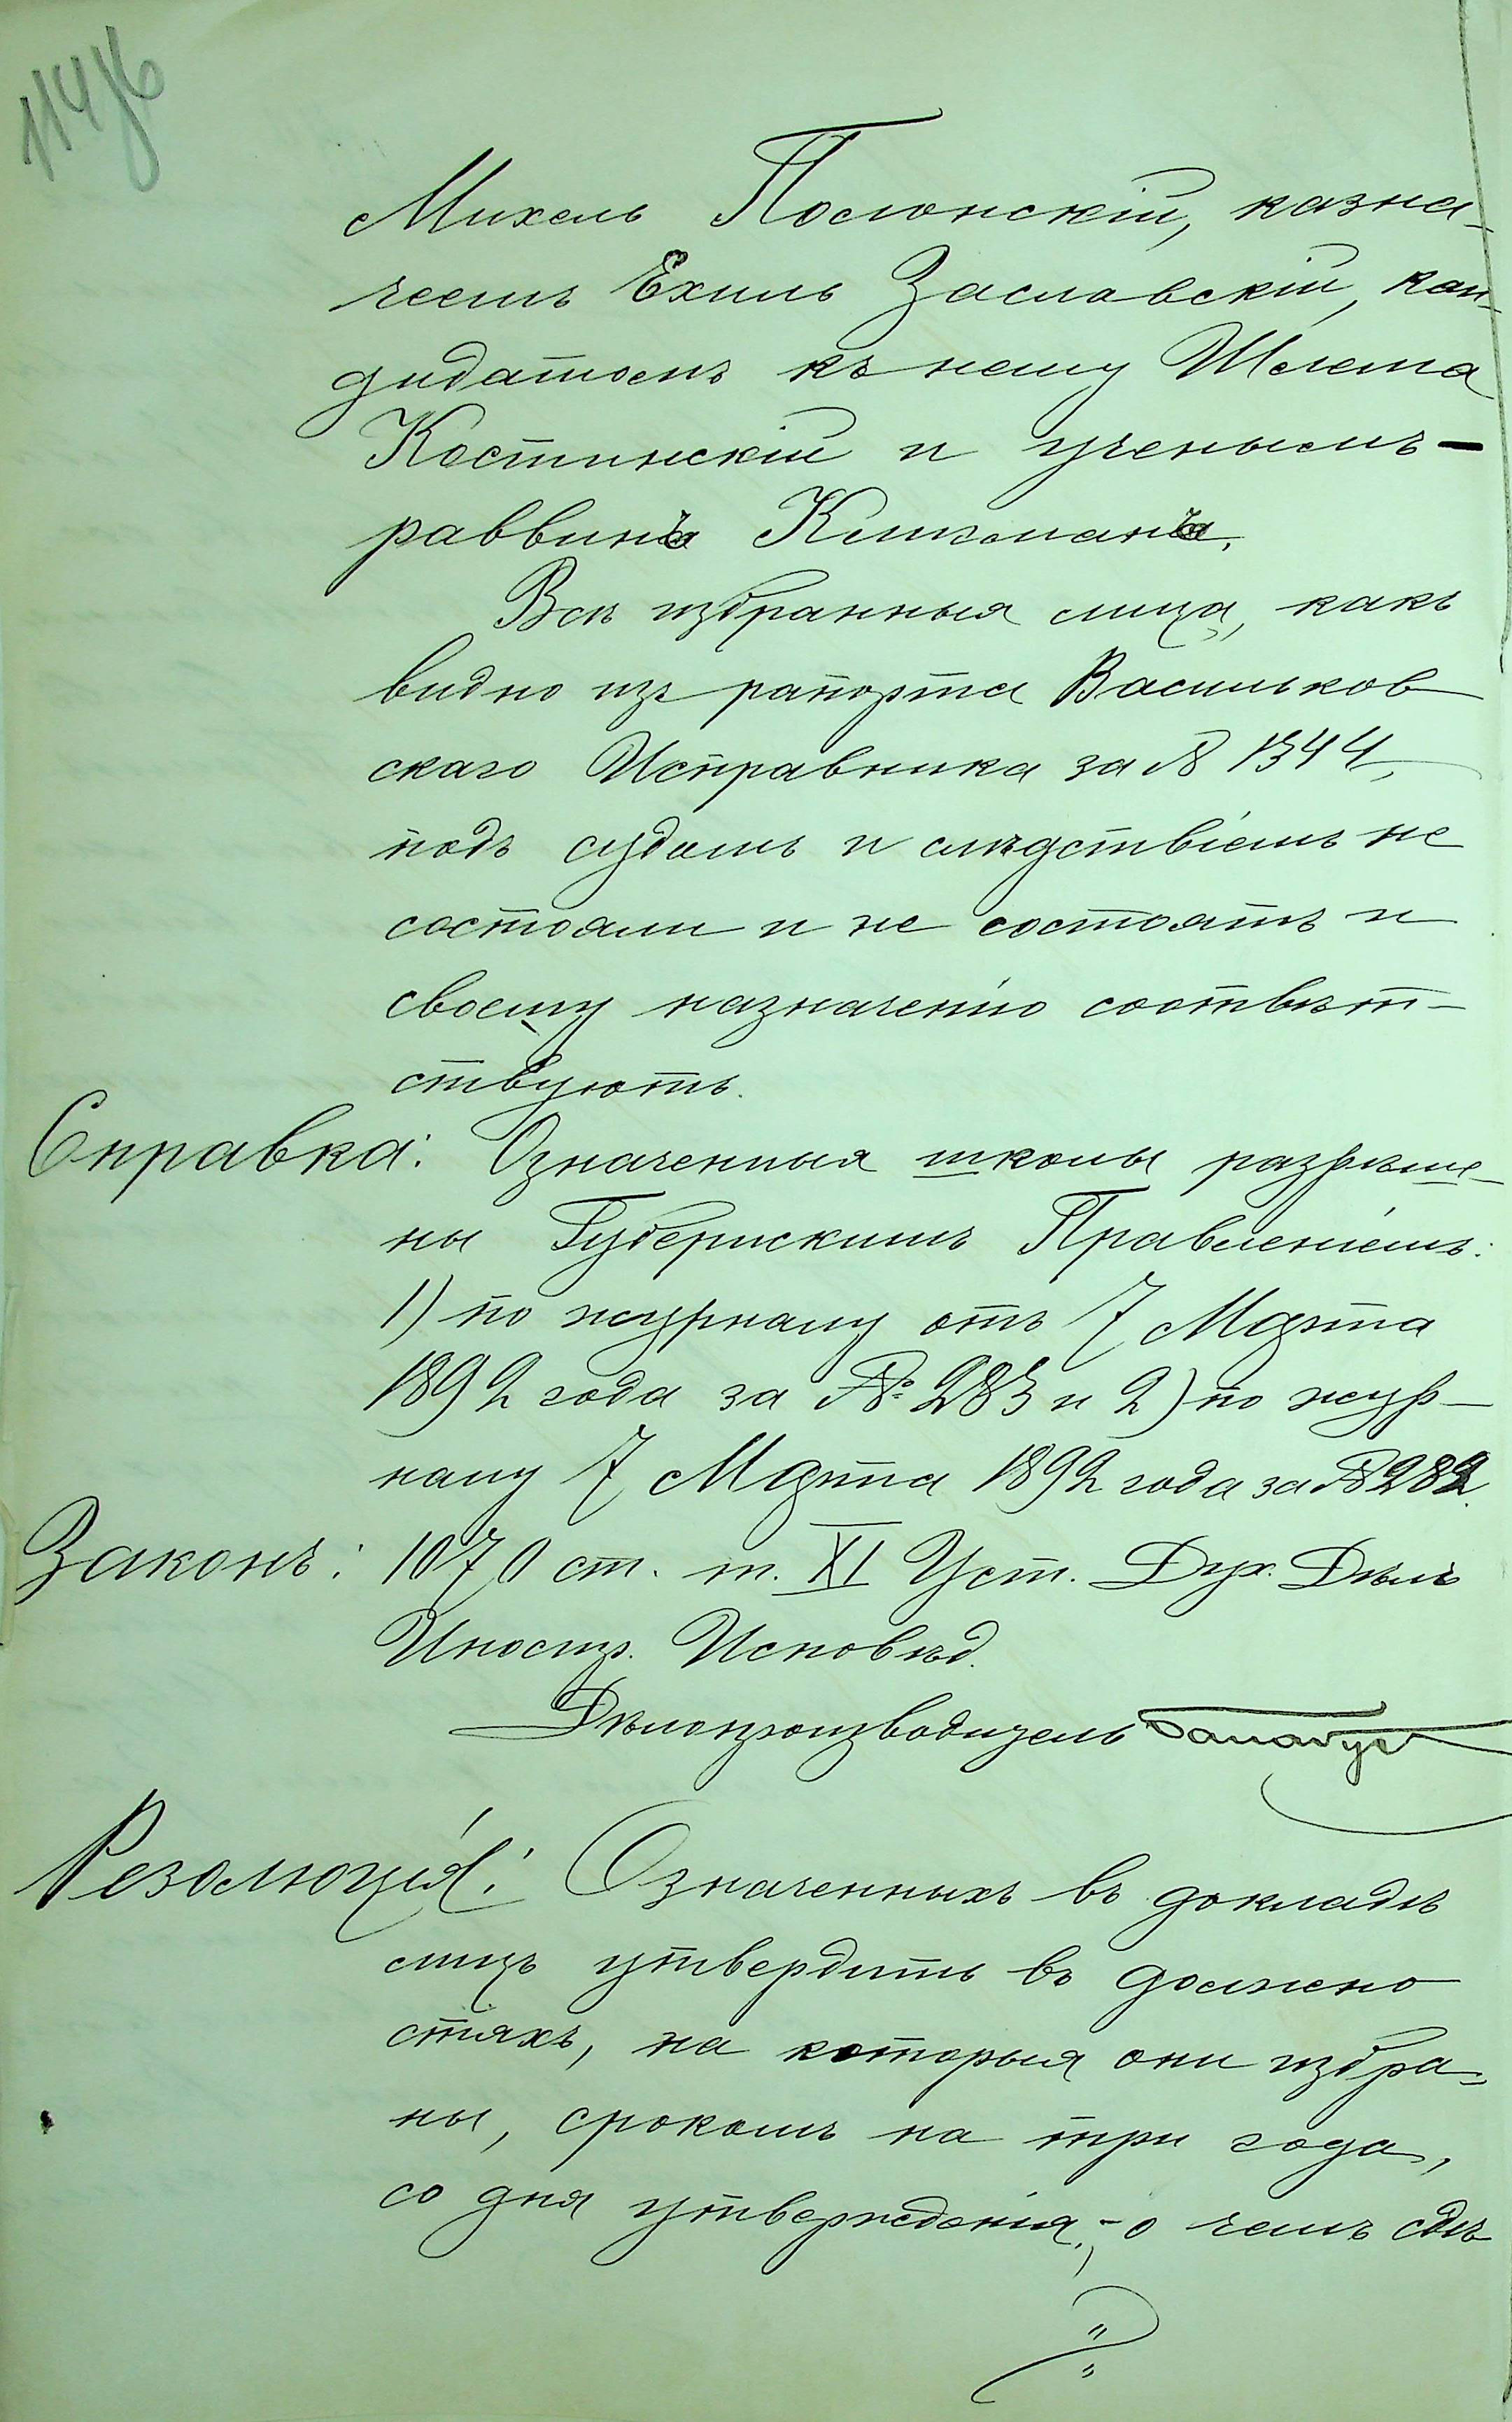 114/6
Михель Полонскій, казна-
чеемъ Ехиль Заславскій, кан-
дидатомъ къ нему Шлема
Костинскій и ученымъ -
раввинъ Клигманъ.
Всѣ избранныя лица, какъ
видно изъ рапорта Васильков
скаго Исправника за № 1344,
подъ судомъ и слѣдствіемъ не
состояли и не состоятъ и
своему назначенію соотвѣт-
ствуютъ.
Справка: Означенныя школы разрѣше-
ны Губернскимъ Правленіемъ:
1) по журналу отъ 7 Марта
1892 года за № 283 и 2) по жур-
налу 7 Марта 1892 года за № 282.
Законъ: 1070 ст. т. XI Уст. Дух. Дѣлъ
Иностр. Исповѣд.
Дѣлопроизводитель
Резолюція: Означенныхъ въ докладѣ
лицъ утвердить въ должно
стяхъ, на которыя они избра-
ны, срокомъ на три года,
со дня утвержденія, - о чемъ сдѣ